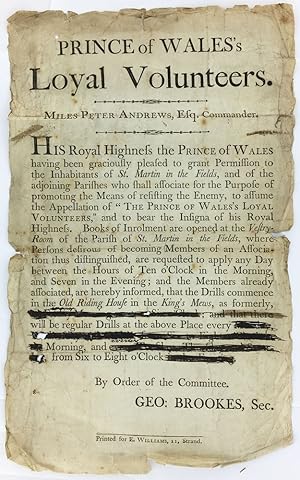 PRINCE of WALES's
Loyal Volunteers.
MILES PETER ANDREWS, Esq. Commander.
HIS Royal Highneſs the PRINCE of WALES
having been graciouſly pleaſed to grant Permiſſion to
the Inhabitants of St. Martin in the Fields, and of the
adjoining Pariſhes who ſhall aſſociate for the Purpoſe of
promoting the Means of reſiſting the Enemy, to aſſume
the Appellation of "THE PRINCE OF WALES'S LOYAL
VOLUNTEERS," and to bear the Inſignia of his Royal
Highneſs. Books of Inrolment are opened at the Veſtry-
Room of the Pariſh of St. Martin in the Fields, where
Perſons deſirous of becoming Members of an Aſſocia-
tion thus diſtinguiſhed, are requeſted to apply any Day
between the Hours of Ten o'Clock in the Morning,
and Seven in the Evening; and the Members already
aſſociated, are hereby informed, that the Drills commence
in the Old Riding Houſe in the King's Mews, as formerly,
; and that there
will be regular Drills at the above Place every
Morning, and
from Six to Eight o'Clock
By Order of the Committee.
GEO: BROOKES, Sec.
Printed for E. WILLIAMS, 11, Strand.